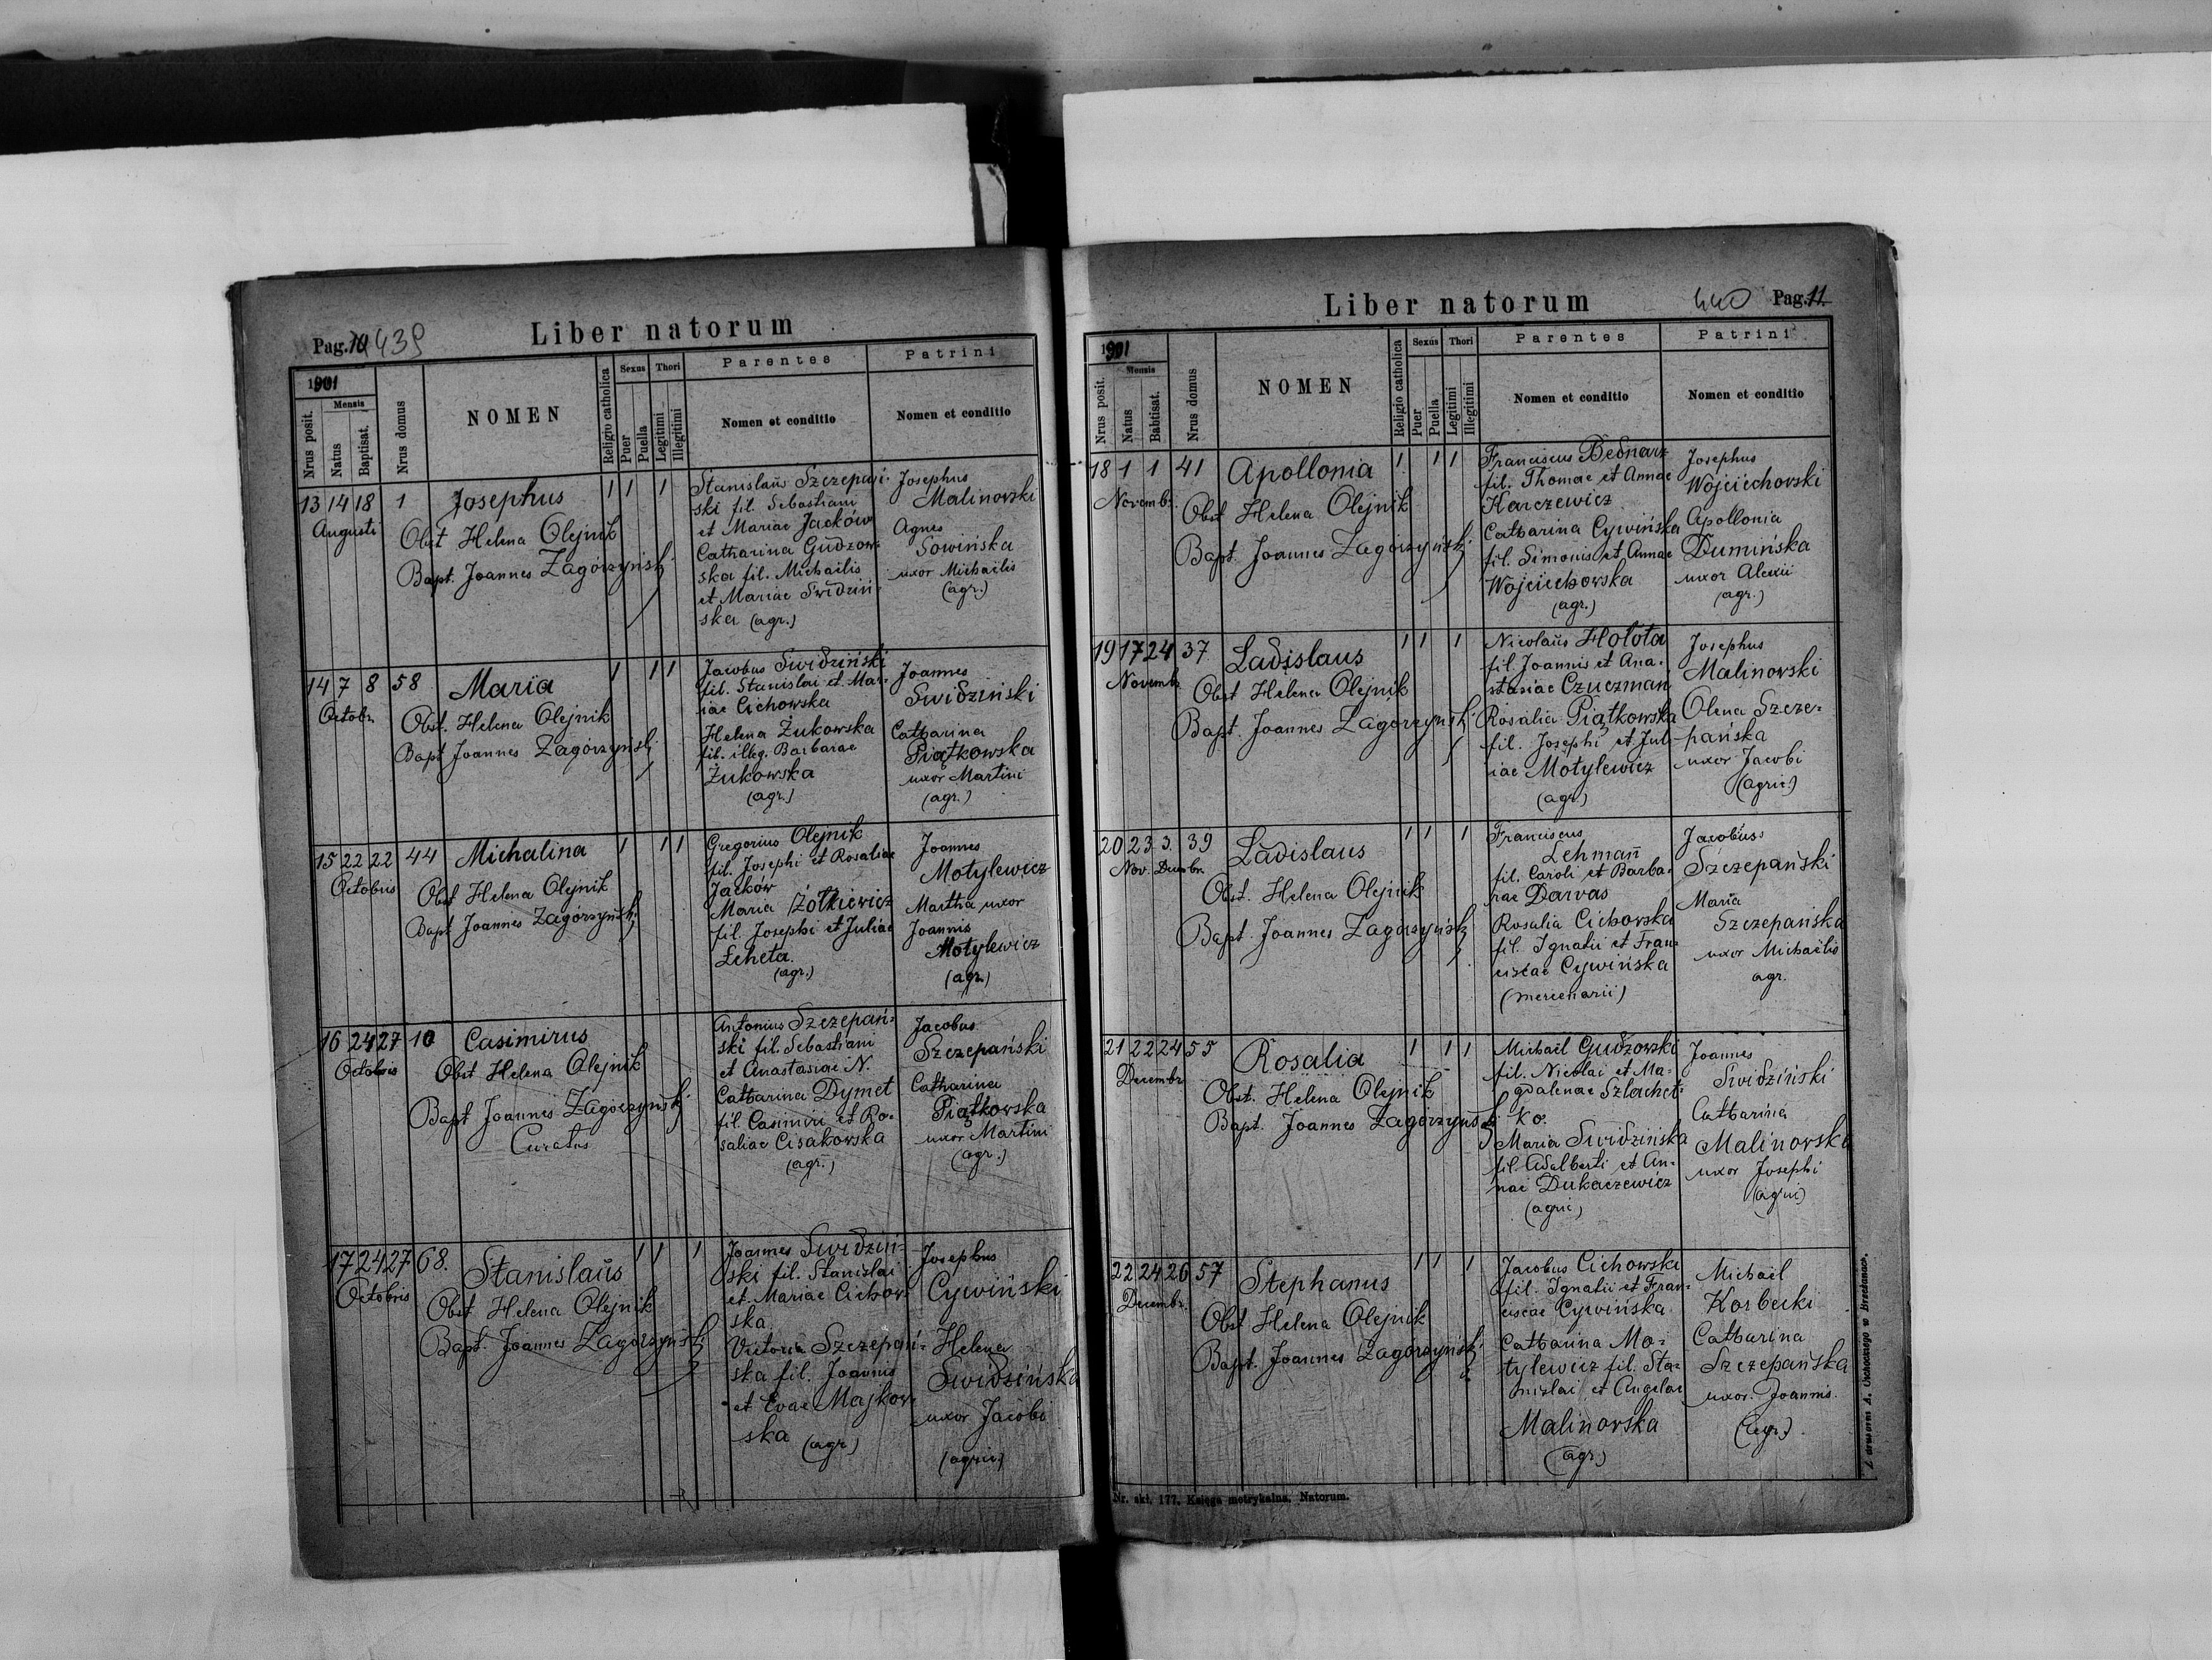 Pag. 10 439
Liber natorum
1901
Nrus posit.
Mensis
Natus
Baptisat.
Nrus domus
NOMEN
Religio catholica
Sexus
Puer
Puella
Thori
Legitimi
Illegitimi
Parentes
Nomen et conditio
Patrini
Nomen et conditio
13 14 18 1 Josephus 1 1 1
Augusti
Obst Helena Olejnik
Bapt. Joannes Zagórzyński
Stanislaus Szczepań-
ski fil. Sebastiani
et Mariae Jacków
Catharina Gudzow-
ska fil. Michaelis
et Mariae Swidziń-
ska (agr.)
Josephus
Malinowski
Agnes
Sowińska
uxor Michaelis
(agr.)
14 7 8 58 Maria 1 1 1
Octobr.
Obst. Helena Olejnik
Bapt Joannes Zagórzyński
Jacobus Swidziński
fil. Stanislai et Mar-
iae Cichowska
Helena Żukowska
fil. illeg. Barbarae
Żukowska
(agr.)
Joannes
Swidziński
Catharina
Piątkowska
uxor Martini
(agr.)
15 22 22 44 Michalina 1 1 1
Octobris
Obst Helena Olejnik
Bapt Joannes Zagórzyński
Gregorius Olejnik
fil. Josephi et Rosaliae
Jacków
Maria Żółkiewicz
fil. Josephi et Juliae
Łcheta.
(agr.)
Joannes
Motylewicz
Martha uxor
Joannis
Motylewicz
(agr.)
16 24 27 10 Casimirus
Octobris
Obst Helena Olejnik
Bapt Joannes Zagórzyński
Curatus
Antonius Szczepań-
ski fil. Sebastiani
et Anastasiae N.
Catharina Dymet
fil. Casimiri et Ro-
saliae Cisakowska
(agr.)
Jacobus
Szczepański
Catharina
Piątkowska
uxor Martini
(agr.)
17 24 27 68. Stanislaus 1 1 1
Octobris
Obst Helena Olejnik
Bapt. Joannes Zagórzyński
Joannes Swidziń-
ski fil. Stanislai
et Mariae Cichow-
ska
Victoria Szczepań-
ska fil. Joannis
et Evae Majkow-
ska (agr)
Josephus
Cywiński
Helena
Swidzińska
uxor Jacobi
(agric.)
Liber natorum
440 Pag. 11.
1901
Nrus posit.
Mensis
Natus
Babtisat.
Nrus domus
NOMEN
Religio catholica
Sexus
Puer
Puella
Thori
Legitimi
Illegitimi
Parentes
Nomen et conditio
Patrini
Nomen et conditio
18 1 1 41 Apollonia 1 1 1
Novemb.
Obst Helena Olejnik
Bapt. Joannes Zagórzyński
Franciscus Bednarz
fil. Thomae et Annae
Karczewicz
Catharina Cywińska
fil. Simonis et Annae
Wojciechowska
(agr.)
Josephus
Wojciechowski
Apollonia
Dumińska
uxor Alexii
(agr.)
19 17 24 37 Ladislaus 1 1 1
Novemb.
Obst Helena Olejnik
Bapt. Joannes Zagórzyński
Nicolaus Hołota
fil. Joannis et Ana-
stasiae Czuczman
Rosalia Piątkowska
fil. Josephi et Jul-
iae Motylewicz
(agr.)
Josephus
Malinowski
Olena Szcze-
pańska
uxor Jacobi
(agric.)
20 23 3. 39 Ladislaus 1 1 1
Nov. Decembr.
Obst. Helena Olejnik
Bapt. Joannes Zagórzyński
Franciscus
Lehmann
fil. Caroli et Barba-
rae Darvas
Rosalia Cichowska
fil. Ignatii et Fran-
ciscae Cywińska
(mercenarii)
Jacobus
Szczepański
Maria
Szczepańska
uxor Michaelis
agr.
21 22 24 55 Rosalia 1 1 1
Decembr.
Obst. Helena Olejnik
Bapt. Joannes Zagórzyński
Michael Gudzowski
fil. Nicolai et Ma-
gdalenae Szlachet-
ko.
Maria Swidzińska
fil. Adalberti et An-
nae Dukaczewicz
(agric)
Joannes
Swidziński
Catharina
Malinowska
uxor Josephi
(agric)
22 24 26 57 Stephanus 1 1 1
Decembr.
Obst Helena Olejnik
Bapt. Joannes Zagórzyński
Jacobus Cichowski
fil. Ignatii et Fran-
ciscae Cywińska
Catharina Mo-
tylewicz fil. Sta-
nislai et Angelae
Malinowska
(agr.)
Michael
Korbecki
Catharina
Szczepańska
uxor. Joannis.
(agr.)
Nr. skt. 177. Księga metrykalna. Natorum.